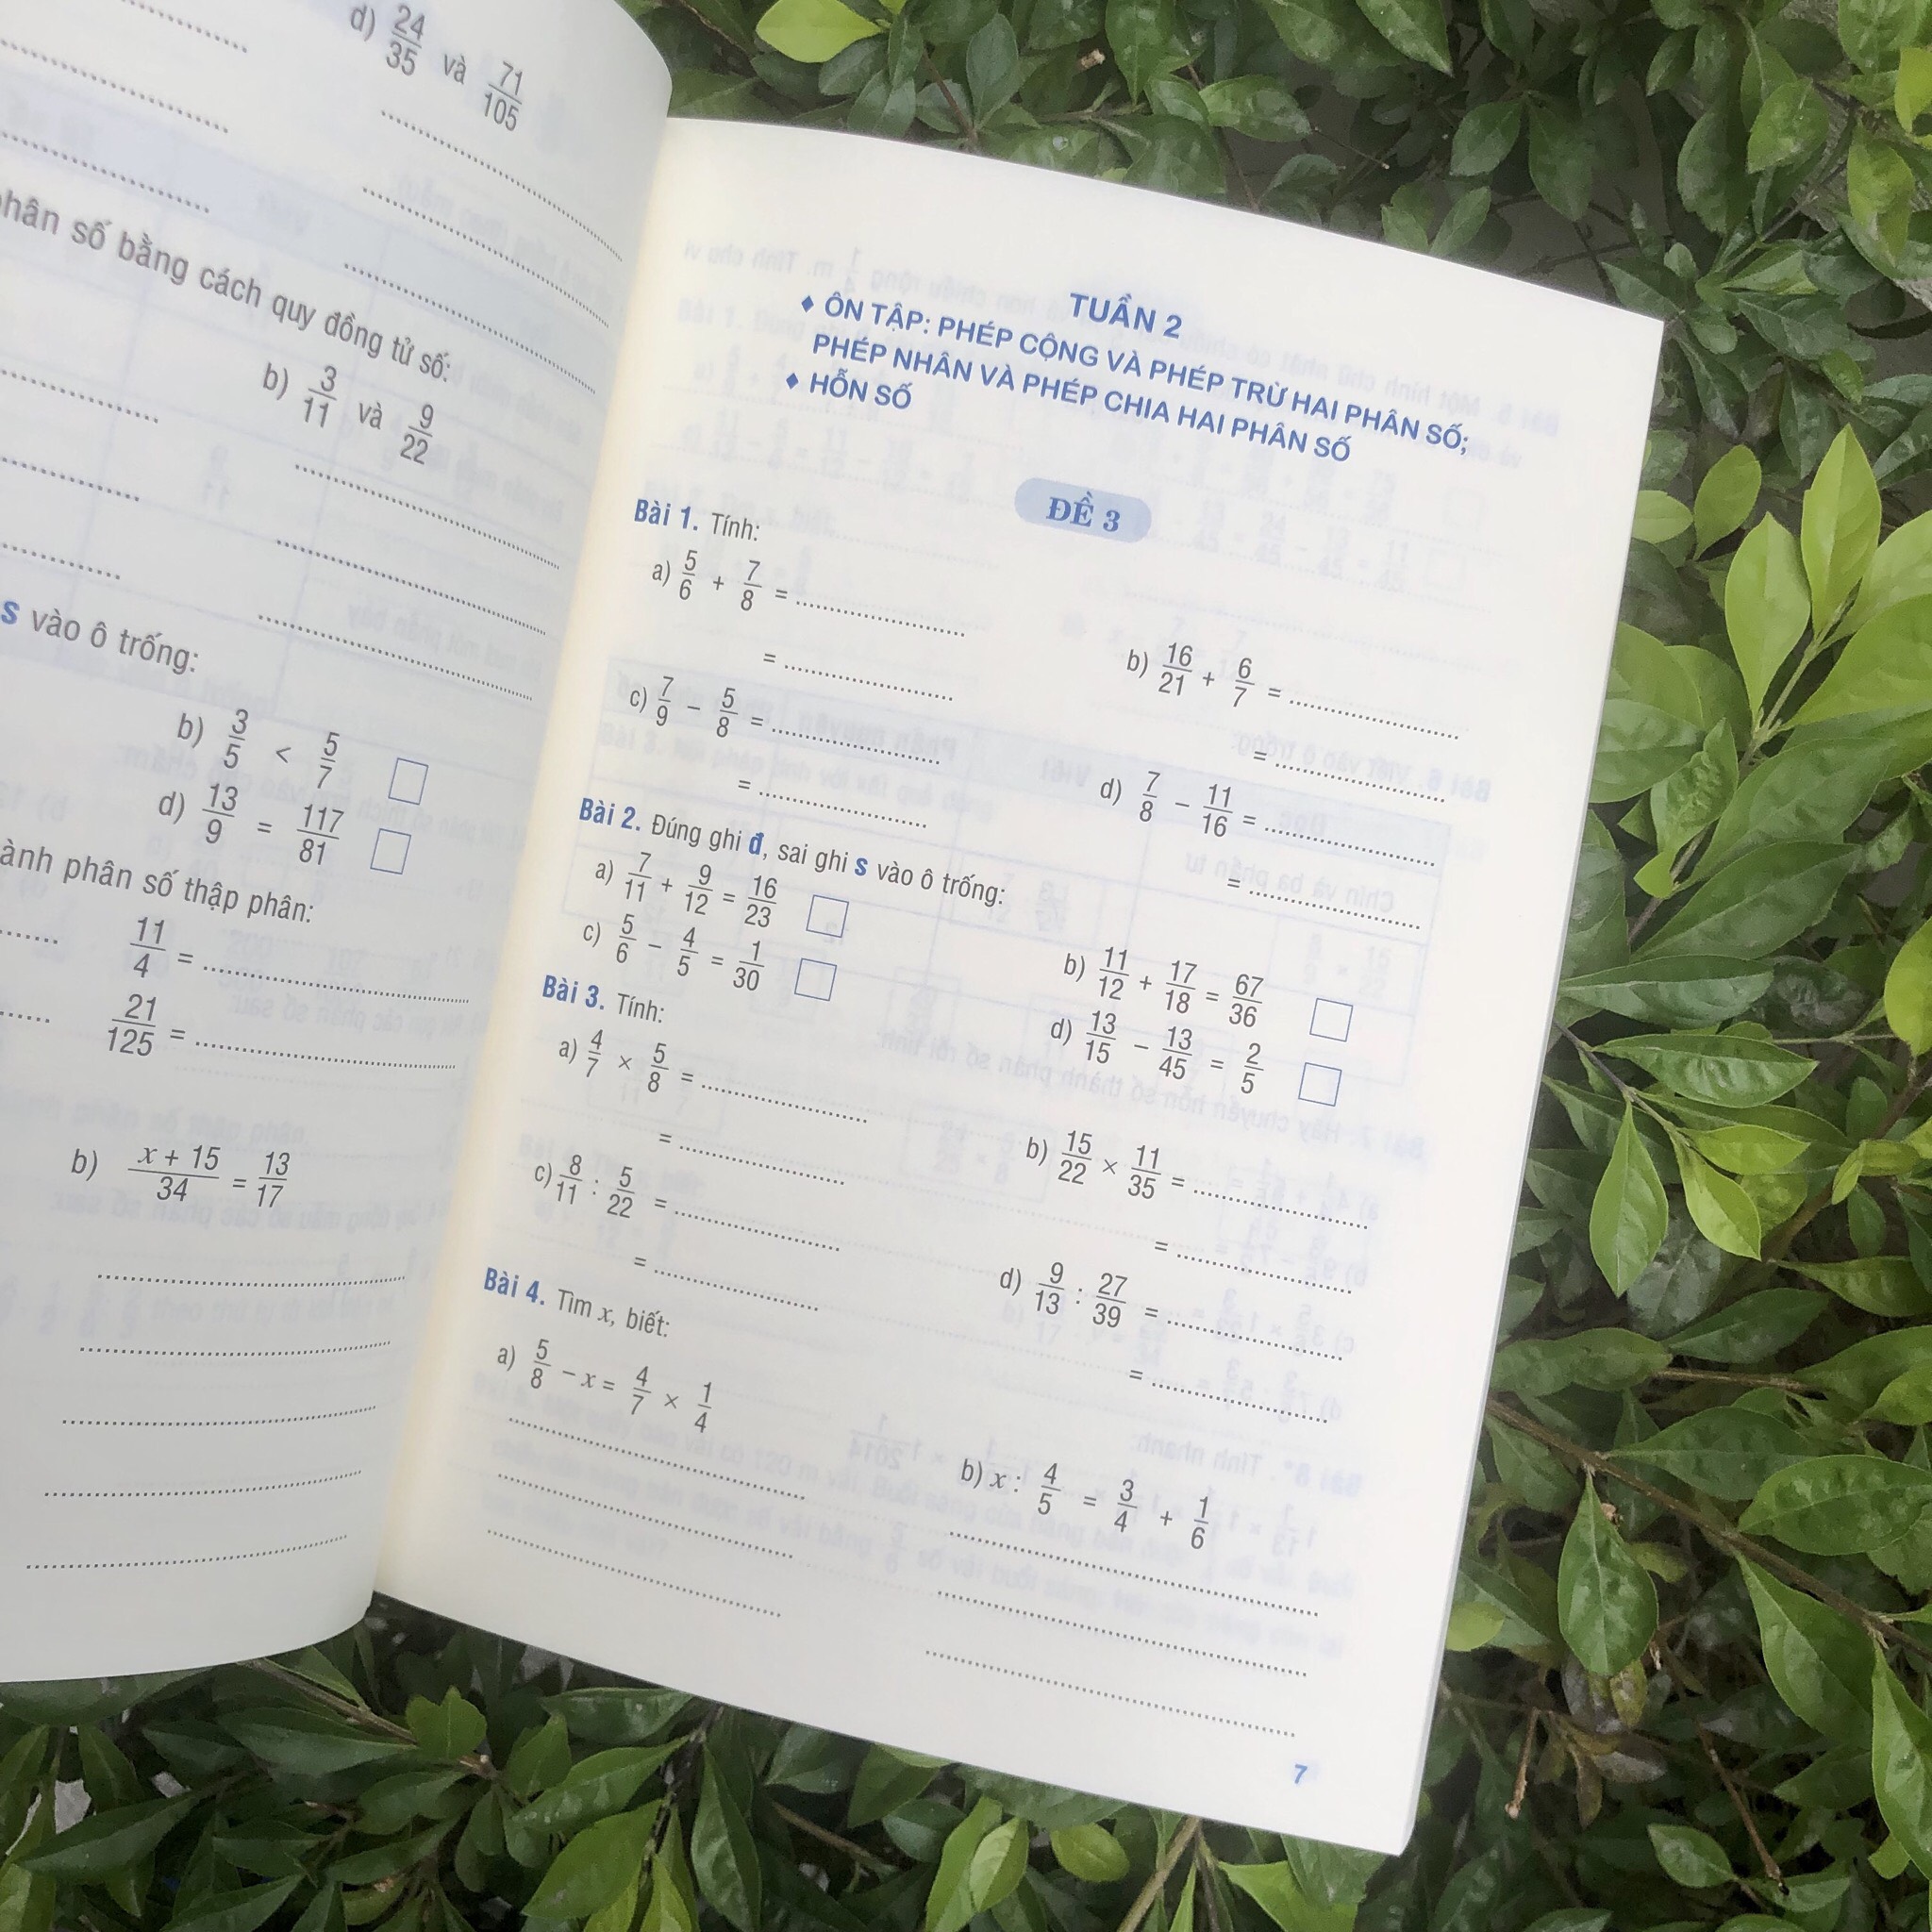 d) 24/35 và 71/105
phân số bằng cách quy đồng tử số:
b) 3/11 và 9/22
s vào ô trống:
b) 3/5 < 5/7
d) 13/9 = 117/81
ành phân số thập phân:
11/4 = ........
21/125 = ........
b) (x + 15)/34 = 13/17
TUẦN 2
♦ ÔN TẬP: PHÉP CỘNG VÀ PHÉP TRỪ HAI PHÂN SỐ;
PHÉP NHÂN VÀ PHÉP CHIA HAI PHÂN SỐ
♦ HỖN SỐ
ĐỀ 3
Bài 1. Tính:
a) 5/6 + 7/8 = ........
= ........
b) 16/21 + 6/7 = ........
= ........
c) 7/9 − 5/8 = ........
= ........
d) 7/8 − 11/16 = ........
= ........
Bài 2. Đúng ghi đ, sai ghi s vào ô trống:
a) 7/11 + 9/12 = 16/23
b) 11/12 + 17/18 = 67/36
c) 5/6 − 4/5 = 1/30
d) 13/15 − 13/45 = 2/5
Bài 3. Tính:
a) 4/7 × 5/8 = ........
= ........
b) 15/22 × 11/35 = ........
= ........
c) 8/11 : 5/22 = ........
= ........
d) 9/13 : 27/39 = ........
= ........
Bài 4. Tìm x, biết:
a) 5/8 − x = 4/7 × 1/4
b) x : 4/5 = 3/4 + 1/6
7